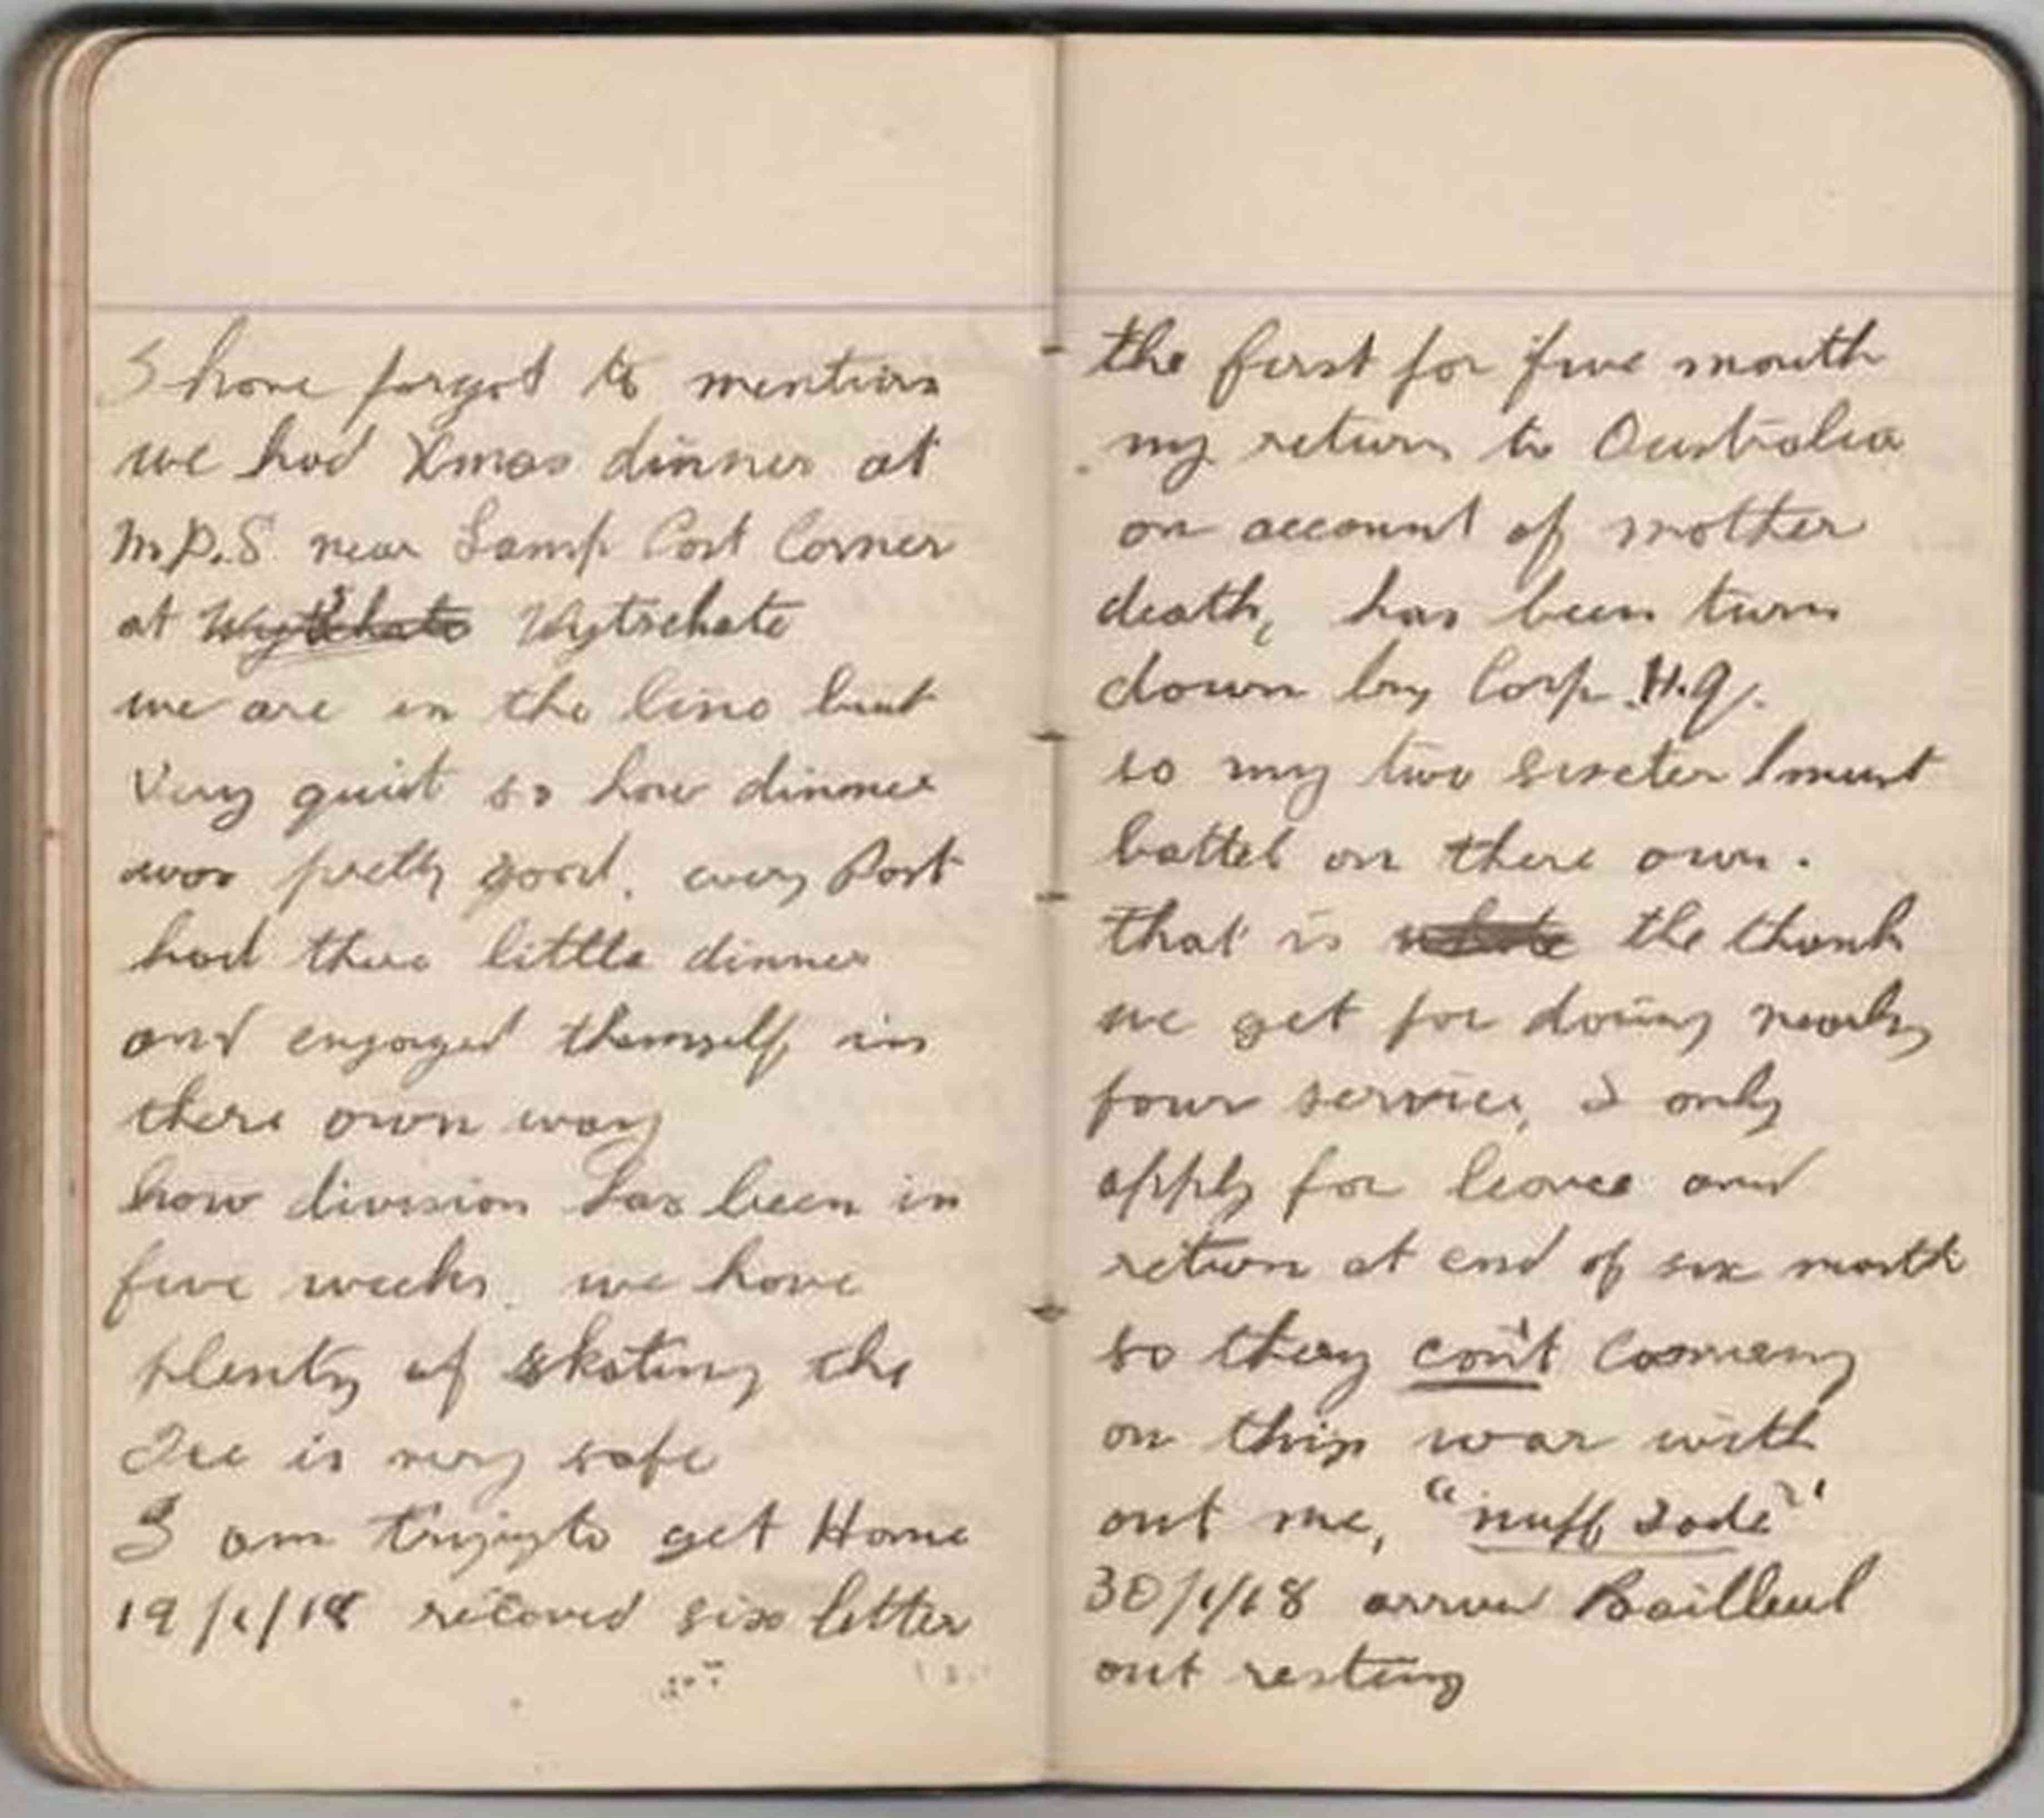 I have forgot to mention
we had Xmas dinner at
M.D.S. near Lamp Post Corner
at Wytschate Wytschate
we are in the line but
Very quiet so how dinner
was pretty good. every Post
had there little dinner
and engoyed themself in
there own way
how division has been in
five weeks. we have
plenty of skating the
Ice is very safe
I am trying to get Home
19/1/18 recoved six letter
the first for five month
my return to Australia
on account of mother
death, has been turn
down by Corp. H.Q.
so my two sister must
battel on there own.
that is the thank
we get for doing nearly
four service, I only
apply for leave and
return at end of six month
so they con't
on this war with
out me, "nuff sade"
30/1/18 arrive Bailleul
out resting